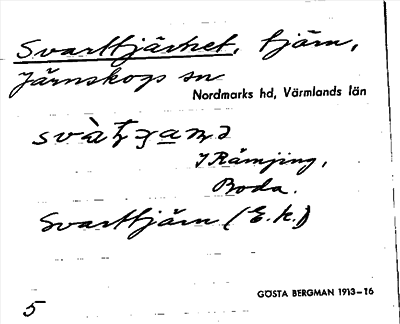 Svarttjärnet, tjärn,
Järnskogs sn
Nordmarks hd, Värmlands län
I Rämjing,
Boda.
Svarttjärn (E.k.)
5
GÖSTA BERGMAN 1913-16